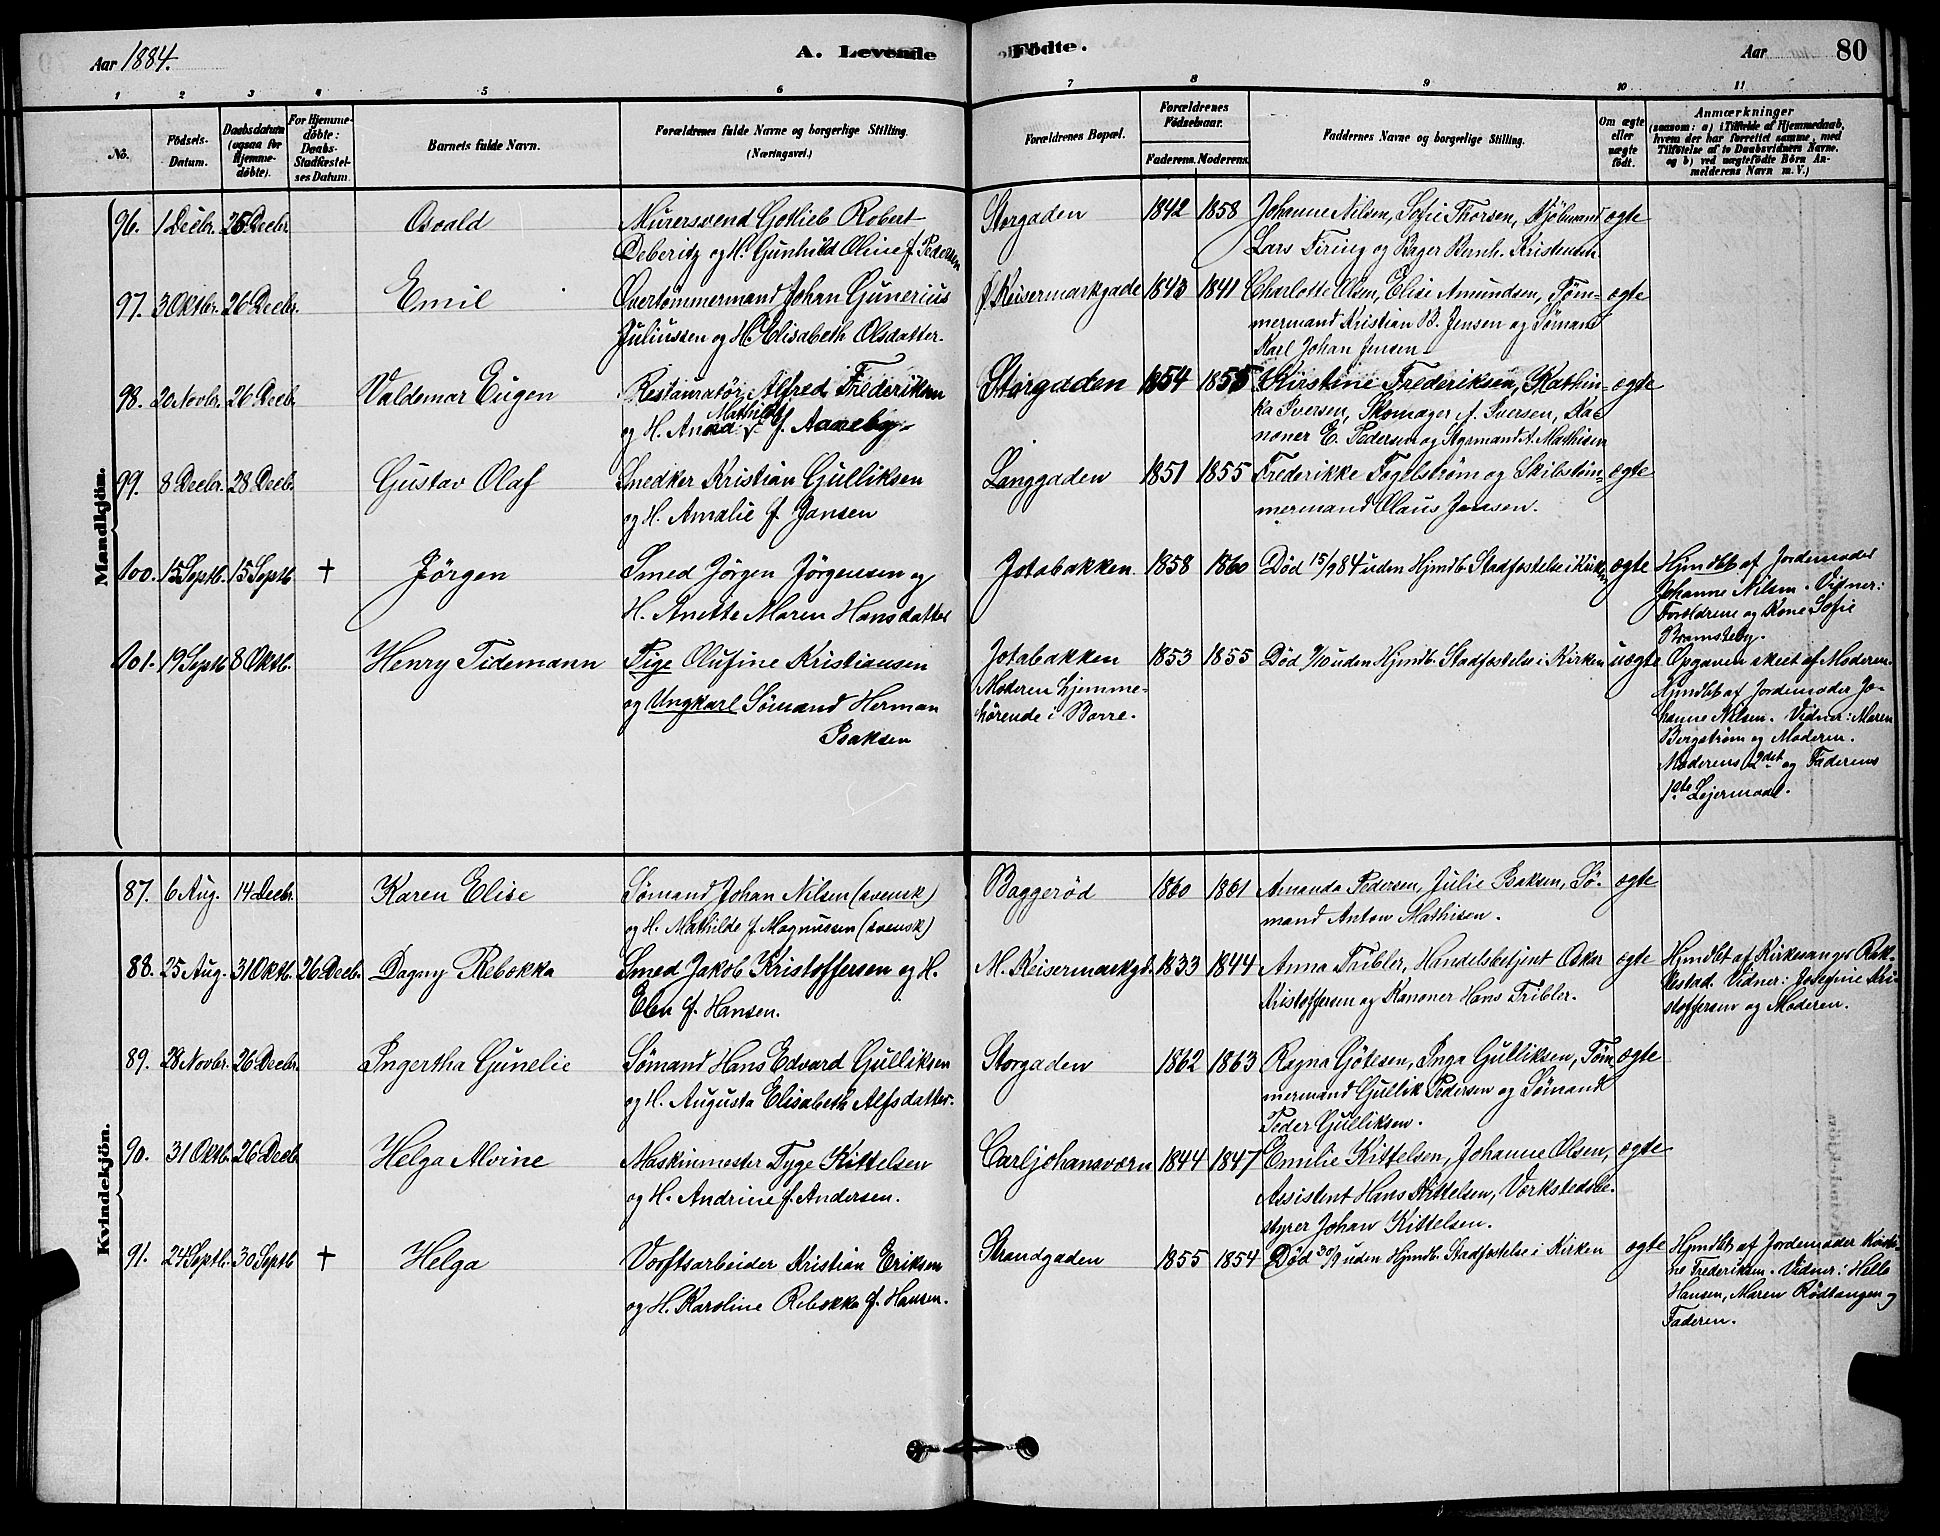 Aar 1884.
A. Levende Födte.
Aar
80
1 2 3 4 5 6 7 8 9 10 11
No.
Födsels-Datum.
Daabsdatum (ogsaa for Hjemme-döbte).
For Hjemme-döbte: Daabs-Stadfæstel-ses Datum.
Barnets fulde Navn.
Forældrenes fulde Navne og borgerlige Stilling. (Næringsvei.)
Forældrenes Bopæl.
Forældrenes Födselsaar.
Faderens. Moderens.
Faddernes Navne og borgerlige Stilling.
Om ægte eller uægte födt.
Anmærkninger
(saasom: a) i Tilfælde af Hjemmedaab, hvem der har forrettet samme, med Tilföielse af to Daabsvidners Navne, og b) ved uægtefödte Börn Anmelderens Navn m. V.)
Mandkjön.
96. 1 Decbr. 25 Decbr. Osvald
Murersvend Gotlieb Robert
Deberitz og H. Gunhild Oline f. Pedersen
Storgaden 1842 1858
Johanne Nilsen, Sofie Thorsen, Kjöbmand
Lars Firing og Bager Bernh. Kristensen
ægte
97. 3 Oktbr. 26 Decbr. Emil
Overtömmermand Johan Gunerius
Juliussen og H. Elisabeth Olsdatter.
Keisermarkgade 1843 1841
Charlotte Olsen, Elise Amundsen, Töm-
mermand Kristian B. Jensen og Sömand
Karl Johan Jensen.
ægte
98. 20 Novbr. 26 Decbr. Valdemar Eugen
Restauratör Alfred Frederiksen
og H. Anna Mathilde f. Aaneby.
Storgaden 1854 1855
Kirstine Frederiksen, Kathin-
ka Iversen, Skomager A. Iversen, Ka-
noner E. Pedersen og Styrmand A. Mathisen
ægte
99. 8 Decbr. 28 Decbr. Gustav Olaf
Snedker Kristian Gulliksen
og H. Amalie f. Jansen
Langgaden 1851 1855
Frederikke Fogelström og Skibstöm-
mermand Olaus Jansen.
ægte
100. 15 Septb. 15 Septb. † Jörgen
Smed Jörgen Jörgensen og
H. Anette Maren Hansdatter
Jotabakken 1858 1860
Död 15/9 84 uden Hjmdb. Stadfæstelse i Kirken
ægte
Hjmdbt af Jordemoder
Johanne Nilsen. Vidner:
Forældrene og Kone Sofie
Bramsteby.
101. 19 Septb. 8 Oktb. Henry Tidemann
Pige Olufine Kristiansen
og Ungkarl Sömand Herman
Isaksen
Jotabakken 1853 1855
Moderen hjemme-
hörende i Borre.
Död /10 uden Hjmdb. Stadfæstelse i Kirken
uægte
Opgaven skeet af Moderen.
Hjmdbt af Jordemoder Jo-
hanne Nilsen. Vidner: Maren
Bergström og Moderen.
Moderens 2det og Faderens
1ste Lejermaal.
Kvindekjön.
87. 6 Aug. 14 Decbr. Karen Elise
Sömand Johan Nilsen (svensk)
og H. Mathilde f. Magnussen (svensk)
Baggeröd 1860 1861
Amanda Pedersen, Julie Isaksen, Sö-
mand Anton Mathisen.
ægte
88. 25 Aug. 31 Oktb. 26 Decbr. Dagny Rebekka
Smed Jakob Kristoffersen og H.
Elen f. Hansen.
M. Keisermarkgd. 1833 1844
Anna Tribler, Handelsbetjent Oskar
Kristoffersen og Kanoner Hans Tribler.
ægte
Hjmdbt af Kirkesanger Rak-
kestad. Vidner: Josefine Kri-
stoffersen og Moderen.
89. 28 Novbr. 26 Decbr. Ingertha Gunelie
Sömand Hans Edvard Gulliksen
og H. Augusta Elisabeth Alfsdatter.
Storgaden 1862 1863
Ragna Götesen, Inga Gulliksen, Töm-
mermand Gullik Pedersen og Sömand
Peder Gulliksen.
ægte
90. 31 Oktb. 26 Decbr. Helga Alvine
Maskinmester Tyge Kittelsen
og H. Andrine f. Andersen.
Carljohansværn 1844 1847
Emilie Kittelsen, Johanne Olsen,
Assistent Hans Kittelsen, Værkstedsbe-
styrer Johan Kittelsen.
ægte
91. 24 Septb. 30 Septb. † Helga
Værftsarbeider Kristian Eriksen
og H. Karoline Rebekka f. Hansen.
Strandgaden 1855 1854
Död 30/9 uden Hjmdb. Stadfæstelse i Kirken
ægte
Hjmdbt af Jordemoder Kirsti-
ne Frederiksen. Vidner: Helle
Hansen, Maren Rödtangen og
Faderen.